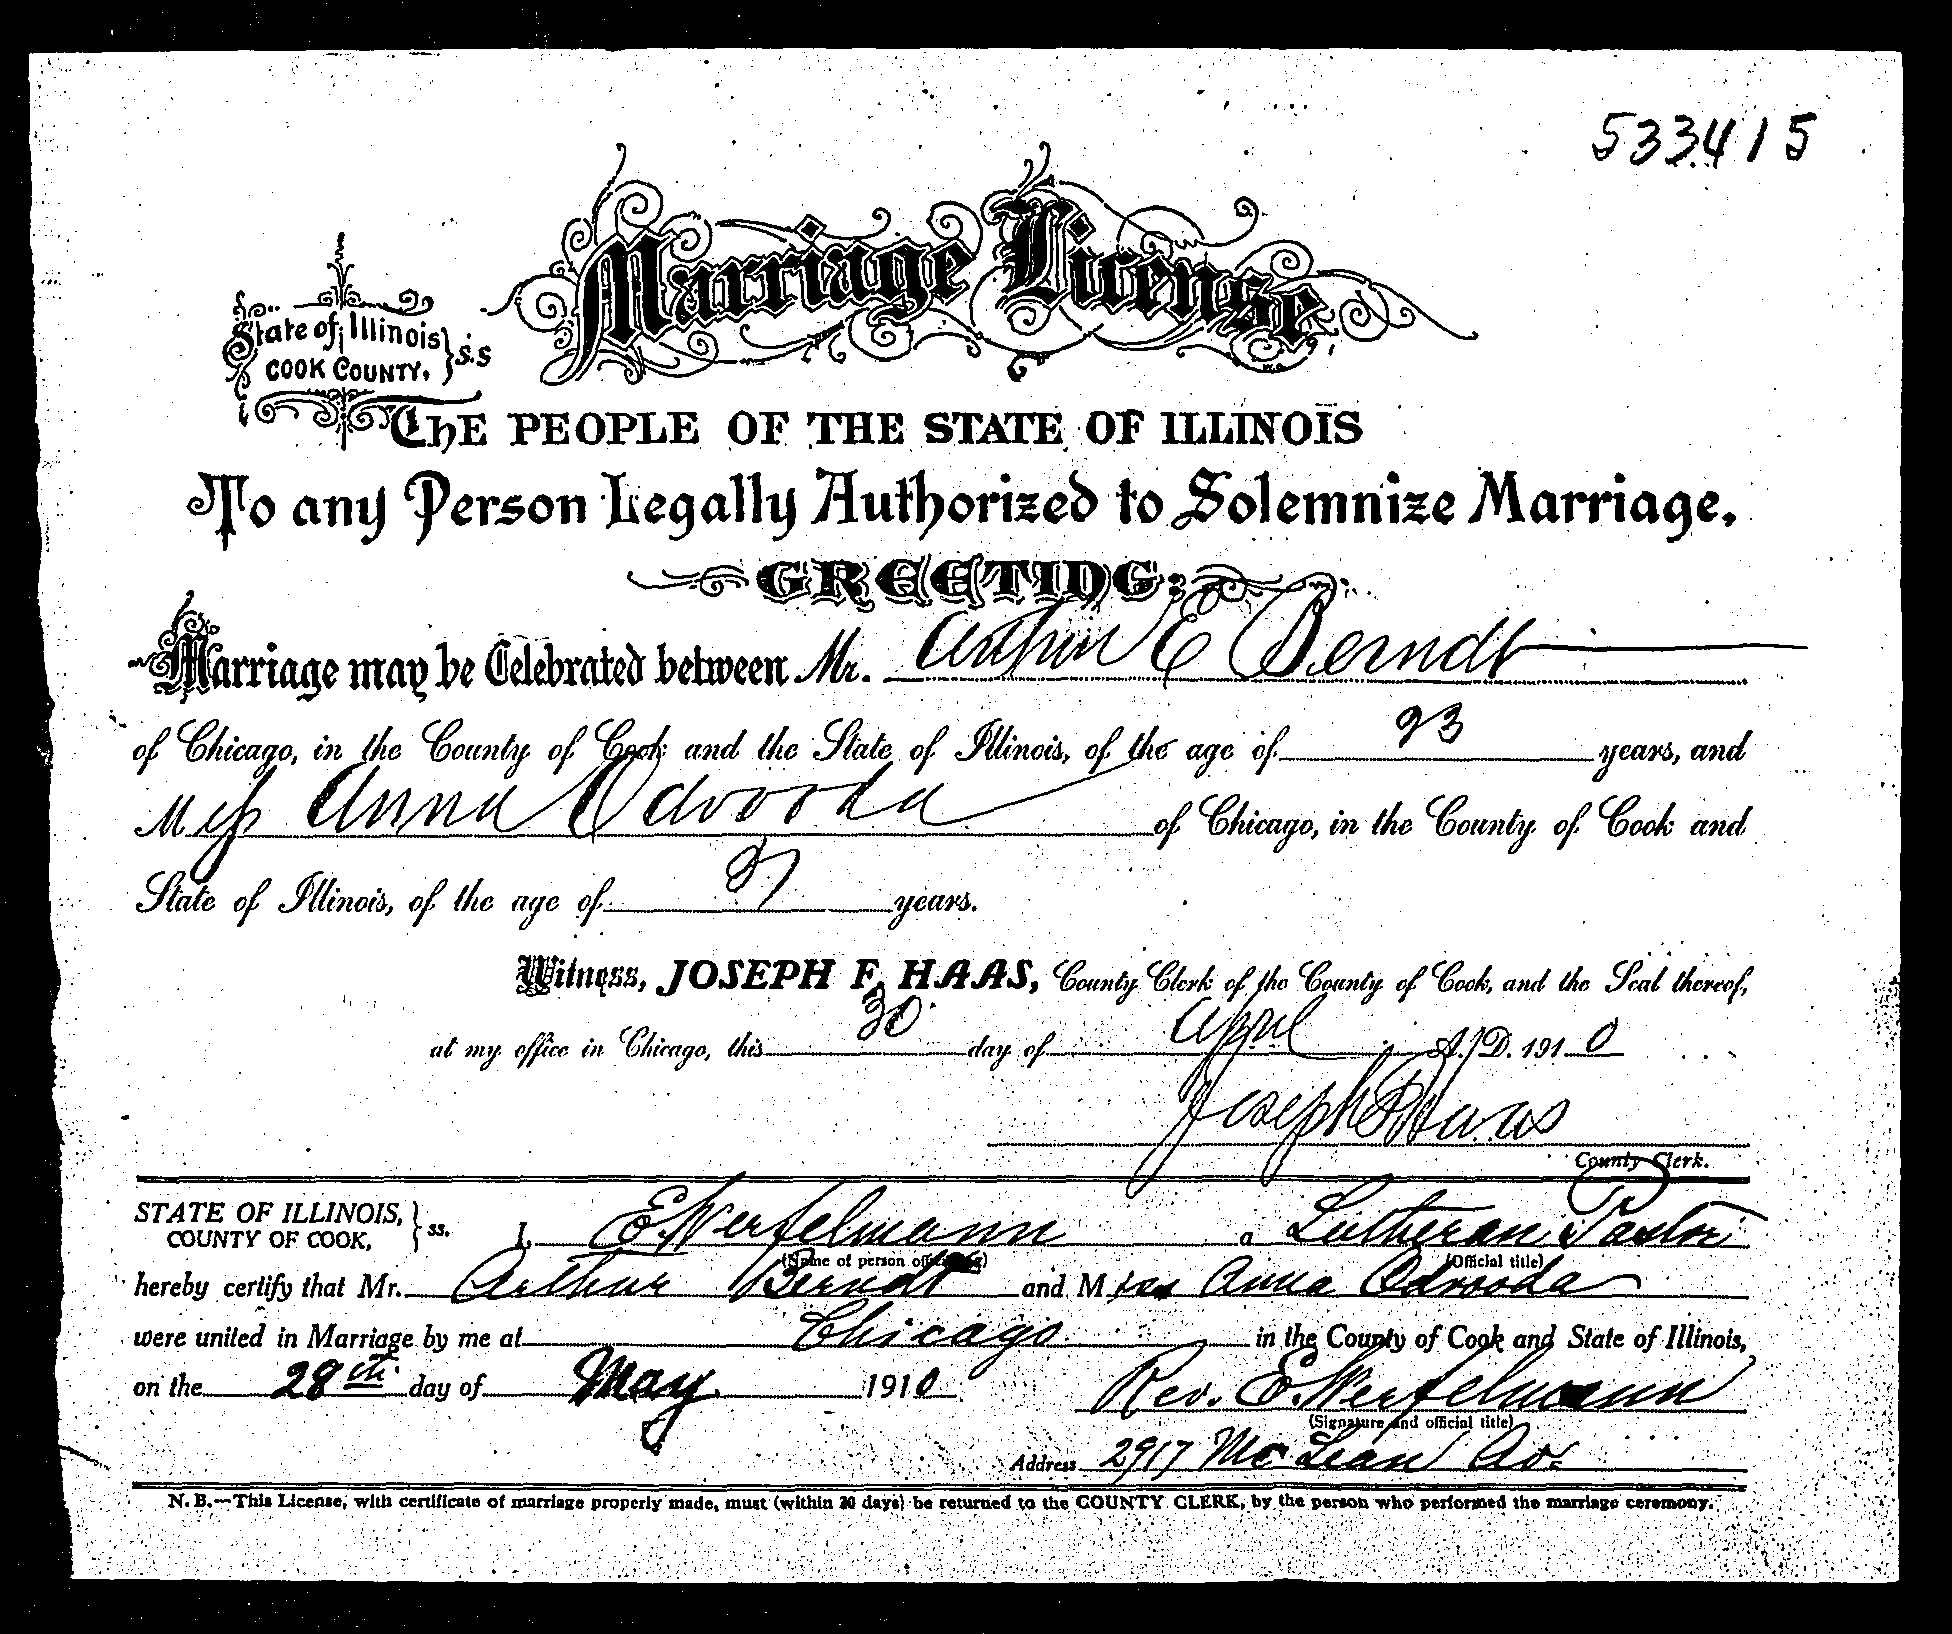 533415
Marriage License
State of Illinois
COOK COUNTY. } s.s
The PEOPLE OF THE STATE OF ILLINOIS
To any Person Legally Authorized to Solemnize Marriage.
GREETING:
Marriage may be Celebrated between Mr. Arthur E Berndt
of Chicago, in the County of Cook and the State of Illinois, of the age of 23 years, and
Miss Anna Odvooda of Chicago, in the County of Cook and
State of Illinois, of the age of years.
Witness, JOSEPH F. HAAS, County Clerk of the County of Cook, and the Seal thereof,
at my office in Chicago, this 30 day of April A.D. 1910
Joseph F Haas
County Clerk.
STATE OF ILLINOIS,
COUNTY OF COOK, } ss. I, E. Werfelmann a Lutheran Pastor
(Name of person officiating) (Official title)
hereby certify that Mr. Arthur Berndt and Miss Anna Odvooda
were united in Marriage by me at Chicago in the County of Cook and State of Illinois,
on the 28th day of May 1910 Rev. E. Werfelmann
(Signature and official title)
Address 2917 McLean Av.
N. B.—This License, with certificate of marriage properly made, must (within 30 days) be returned to the COUNTY CLERK, by the person who performed the marriage ceremony.